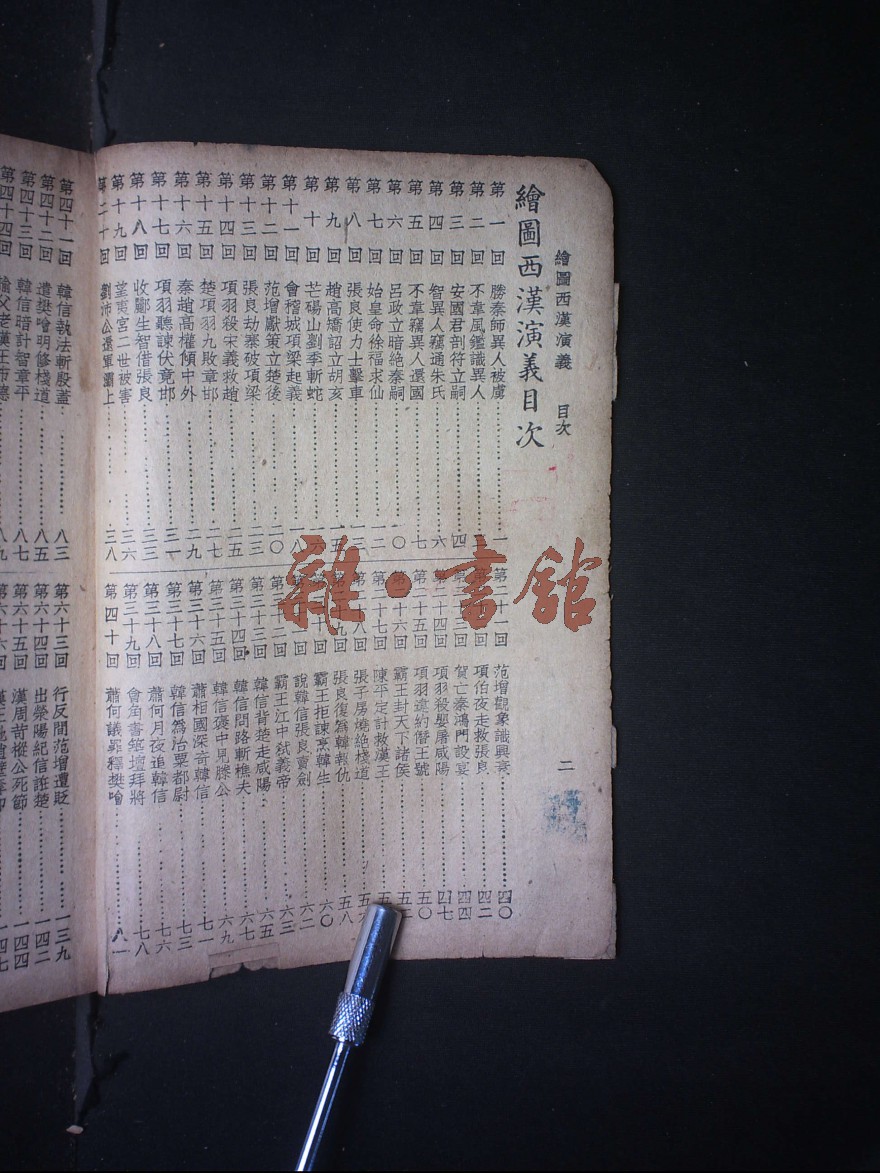 繪圖西漢演義 目次 二
繪圖西漢演義目次
第一回 勝秦師異人被虜 一
第二回 不韋風鑑識異人
第三回 安國君剖符立嗣 四
第四回 智異人竊通朱氏 六
第五回 不韋竊異人還國 七
第六回 呂政立暗絶秦嗣 一〇
第七回 始皇命徐福求仙 一二
第八回 張良使力士擊車 一三
第九回 趙高矯詔立胡亥 一五
第十回 芒碭山劉季斬蛇
第十一回 會稽城項梁起義 一八
第十二回 范增獻策立楚後 二〇
第十三回 張良劫寨破項梁 二三
第十四回 項羽殺宋義救趙 二五
第十五回 楚項羽九敗章邯 二七
第十六回 秦趙高權傾中外 二九
第十七回 項羽聽諫伏章邯 三一
第十八回 收酈生智借張良 三三
第十九回 望夷宮二世被害 三六
第二十回 劉沛公還軍灞上 三八
范增觀象識興衰 四〇
項伯夜走救張良 四二
賀亡秦鴻門設宴 四四
項羽殺嬰屠咸陽 四七
項羽違約僭王號 五〇
霸王封天下諸侯
陳平定計救漢王
張子房燒絶棧道
張良復爲韓報仇 五八
霸王拒諫烹韓生 六〇
說韓信張良賣劍 六二
霸王江中弑義帝 六三
第三十三回 韓信背楚走咸陽 六五
第三十四回 韓信問路斬樵夫 六七
第三十五回 韓信褒中見滕公 六九
第三十六回 蕭相國深奇韓信 七一
第三十七回 韓信爲治粟都尉 七三
第三十八回 蕭何月夜追韓信 七六
第三十九回 會角書築壇拜將 七八
第四十回 蕭何議罪釋樊噲 八一
第四十一回 韓信執法斬殷蓋 八三
第四十二回 遣樊噲明修棧道 八五
第四十三回 韓信暗計智章平 八七
第四十四回 八九
第六十三回 行反間范增遭貶 一三九
第六十四回 出滎陽紀信誑楚 一四二
第六十五回 漢周苛樅公死節 一四四
第六十六回 一四七
雜·書館